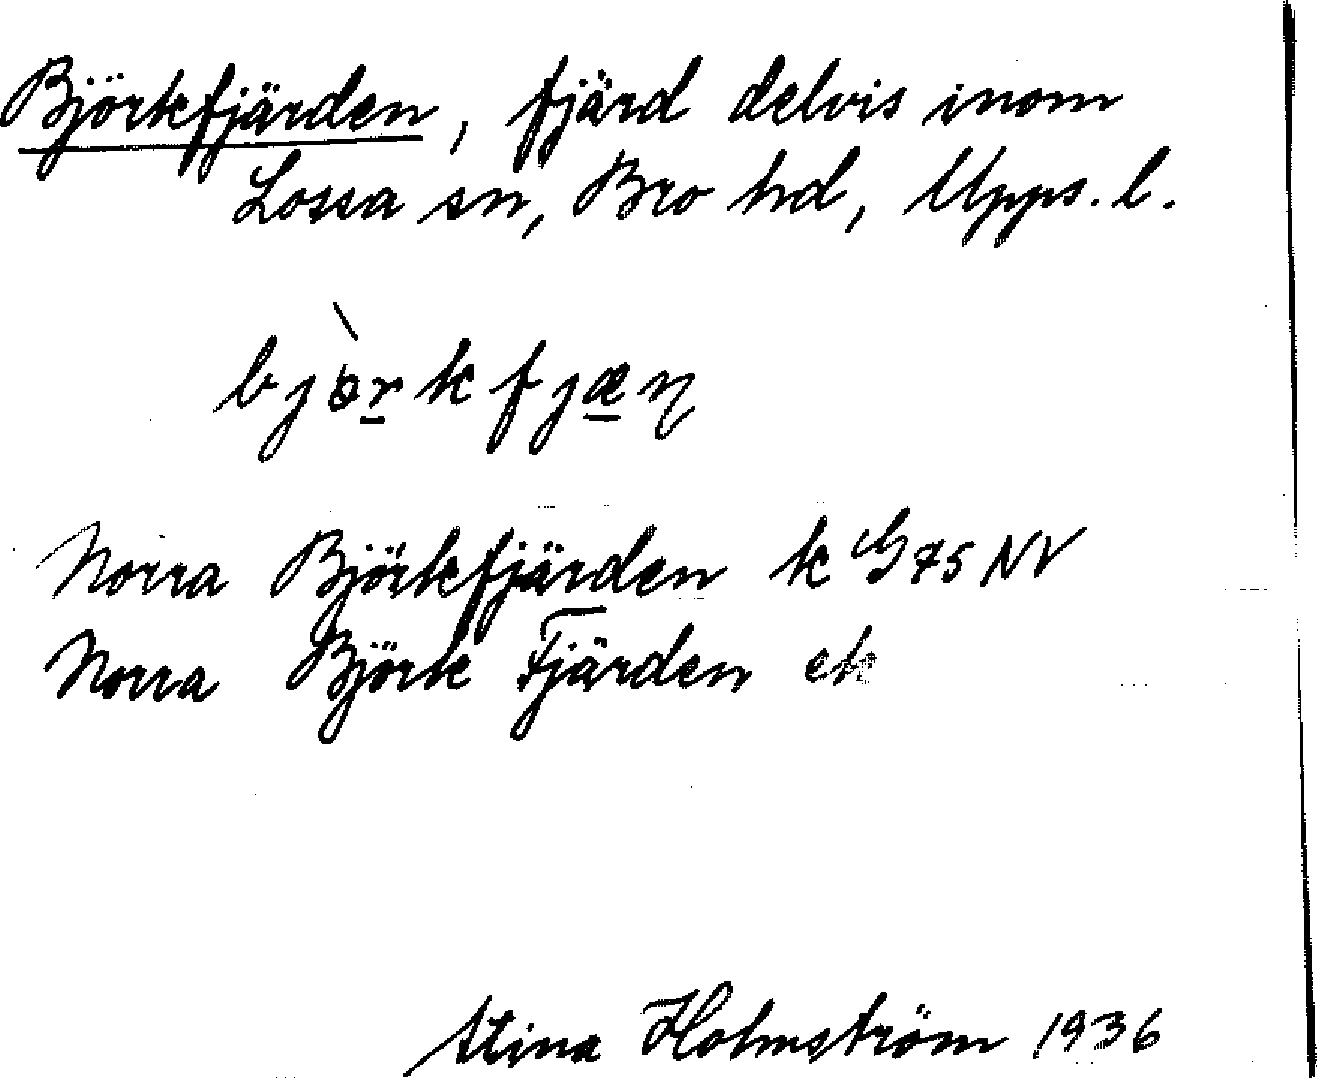 Björkfjärden, fjärd delvis inom
Lossa sn, Bro hd, Upps. l.
bjòrkfjæɳ
Norra Björkfjärden k G 75 NV
Norra Björk Fjärden ek
Stina Holmström 1936